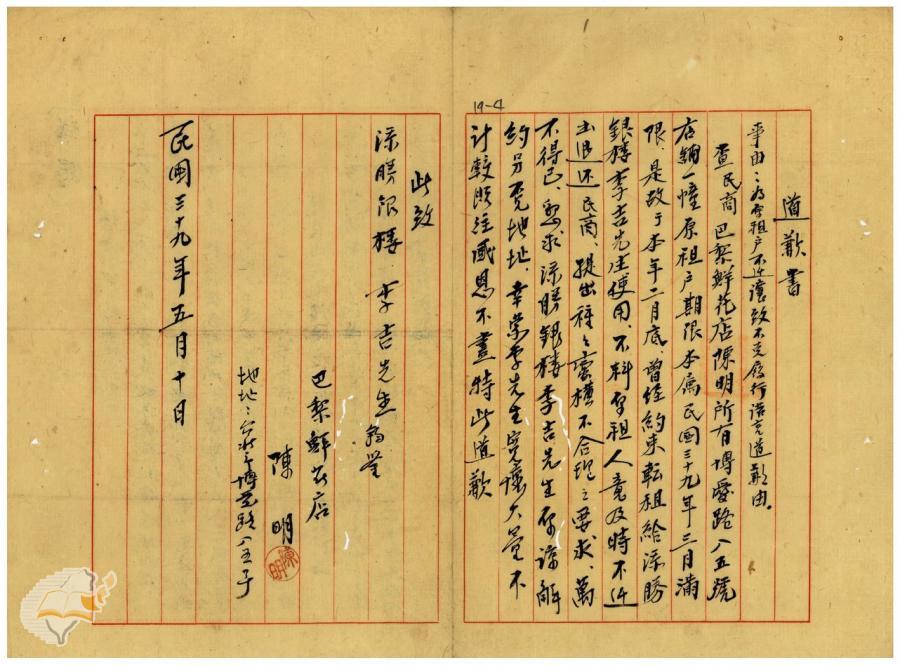 19-4
道歉書
事由：為有租戶不近讓致不克履行諾言道歉由。
查民商巴黎鮮花店陳明所有博愛路八五號
店鋪一幢原租戶期限本屬民國三十九年三月滿
限、是故于本年二月底、曾經約束転租給添勝
銀樓李吉先生使用、不料有租人竟及時不近
出退还民商、提出種々蛮橫不合理之要求、萬
不得已、懇求添勝銀樓李吉先生原諒解
約另覓地址、幸蒙李先生寬懷大量不
計較既往感恩不盡特此道歉
此致
添勝銀樓 李吉先生 鈞鑒
巴黎鮮花店
陳 明
陳明
地址：台北市博愛路八五号
民國三十九年五月十日